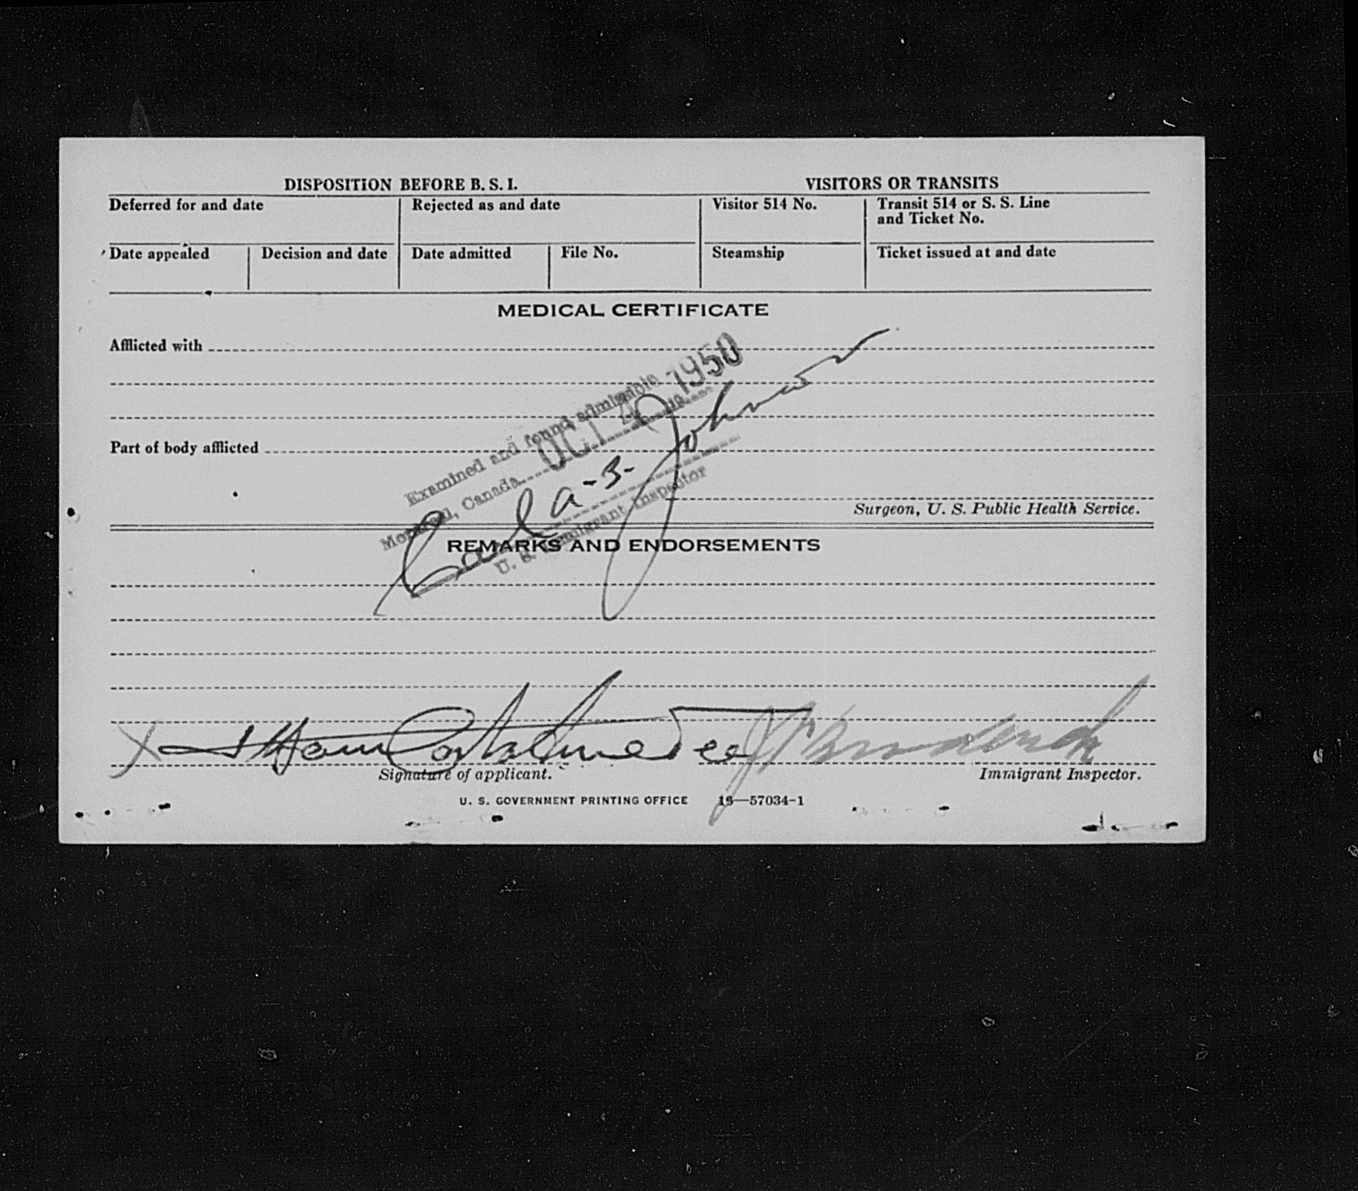 DISPOSITION BEFORE B. S. I.
VISITORS OR TRANSITS
Deferred for and date
Rejected as and date
Visitor 514 No.
Transit 514 or S. S. Line
and Ticket No.
Date appealed
Decision and date
Date admitted
File No.
Steamship
Ticket issued at and date
MEDICAL CERTIFICATE
Afflicted with
Part of body afflicted
Examined and found admissible
Montreal, Canada OCT 1950
U. S. Immigrant Inspector
Johnson
Surgeon, U. S. Public Health Service.
REMARKS AND ENDORSEMENTS
X
Signature of applicant.
Immigrant Inspector.
U. S. GOVERNMENT PRINTING OFFICE 16—57034-1